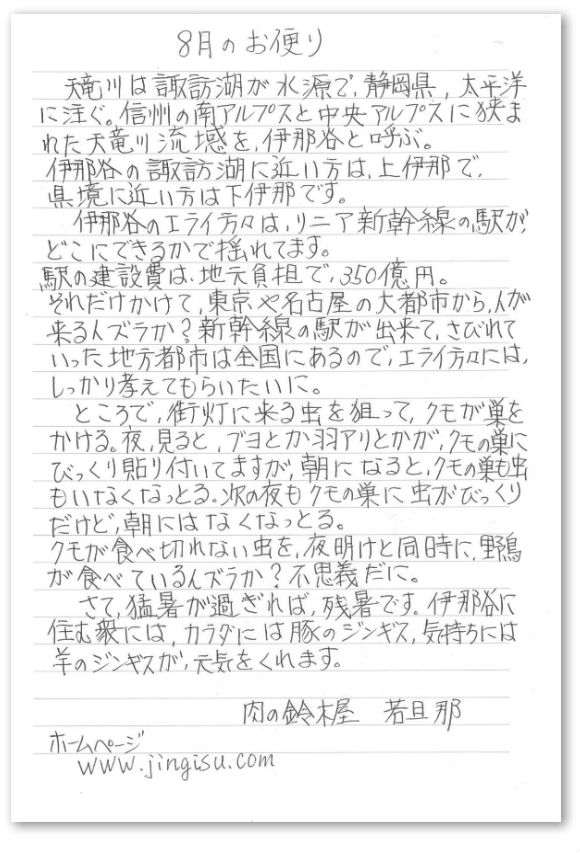 8月のお便り
天竜川は諏訪湖が水源で、静岡県、太平洋
に注ぐ。信州の南アルプスと中央アルプスに狭ま
れた天竜川流域を、伊那谷と呼ぶ。
伊那谷の諏訪湖に近い方は、上伊那で、
県境に近い方は下伊那です。
伊那谷のエライ方々は、リニア新幹線の駅が、
どこにできるかで揺れてます。
駅の建設費は、地元負担で、350億円。
それだけかけて、東京や名古屋の大都市から、人が
来るんズラか?新幹線の駅が出来て、さびれて
いった地方都市は全国にあるので、エライ方々には、
しっかり考えてもらいたいに。
ところで、街灯に来る虫を狙って、クモが巣を
かける。夜、見ると、ブヨとか羽アリとかが、クモの巣に
びっくり貼り付いてますが、朝になると、クモの巣も虫
もいなくなっとる。次の夜もクモの巣に虫がびっくり
だけど、朝にはなくなっとる。
クモが食べ切れない虫を、夜明けと同時に、野鳥
が食べているんズラか?不思義だに。
さて、猛暑が過ぎれば、残暑です。伊那谷に
住む衆には、カラダには豚のジンギス、気持ちには
羊のジンギスが、元気をくれます。
肉の鈴木屋 若旦那
ホームページ
www.jingisu.com